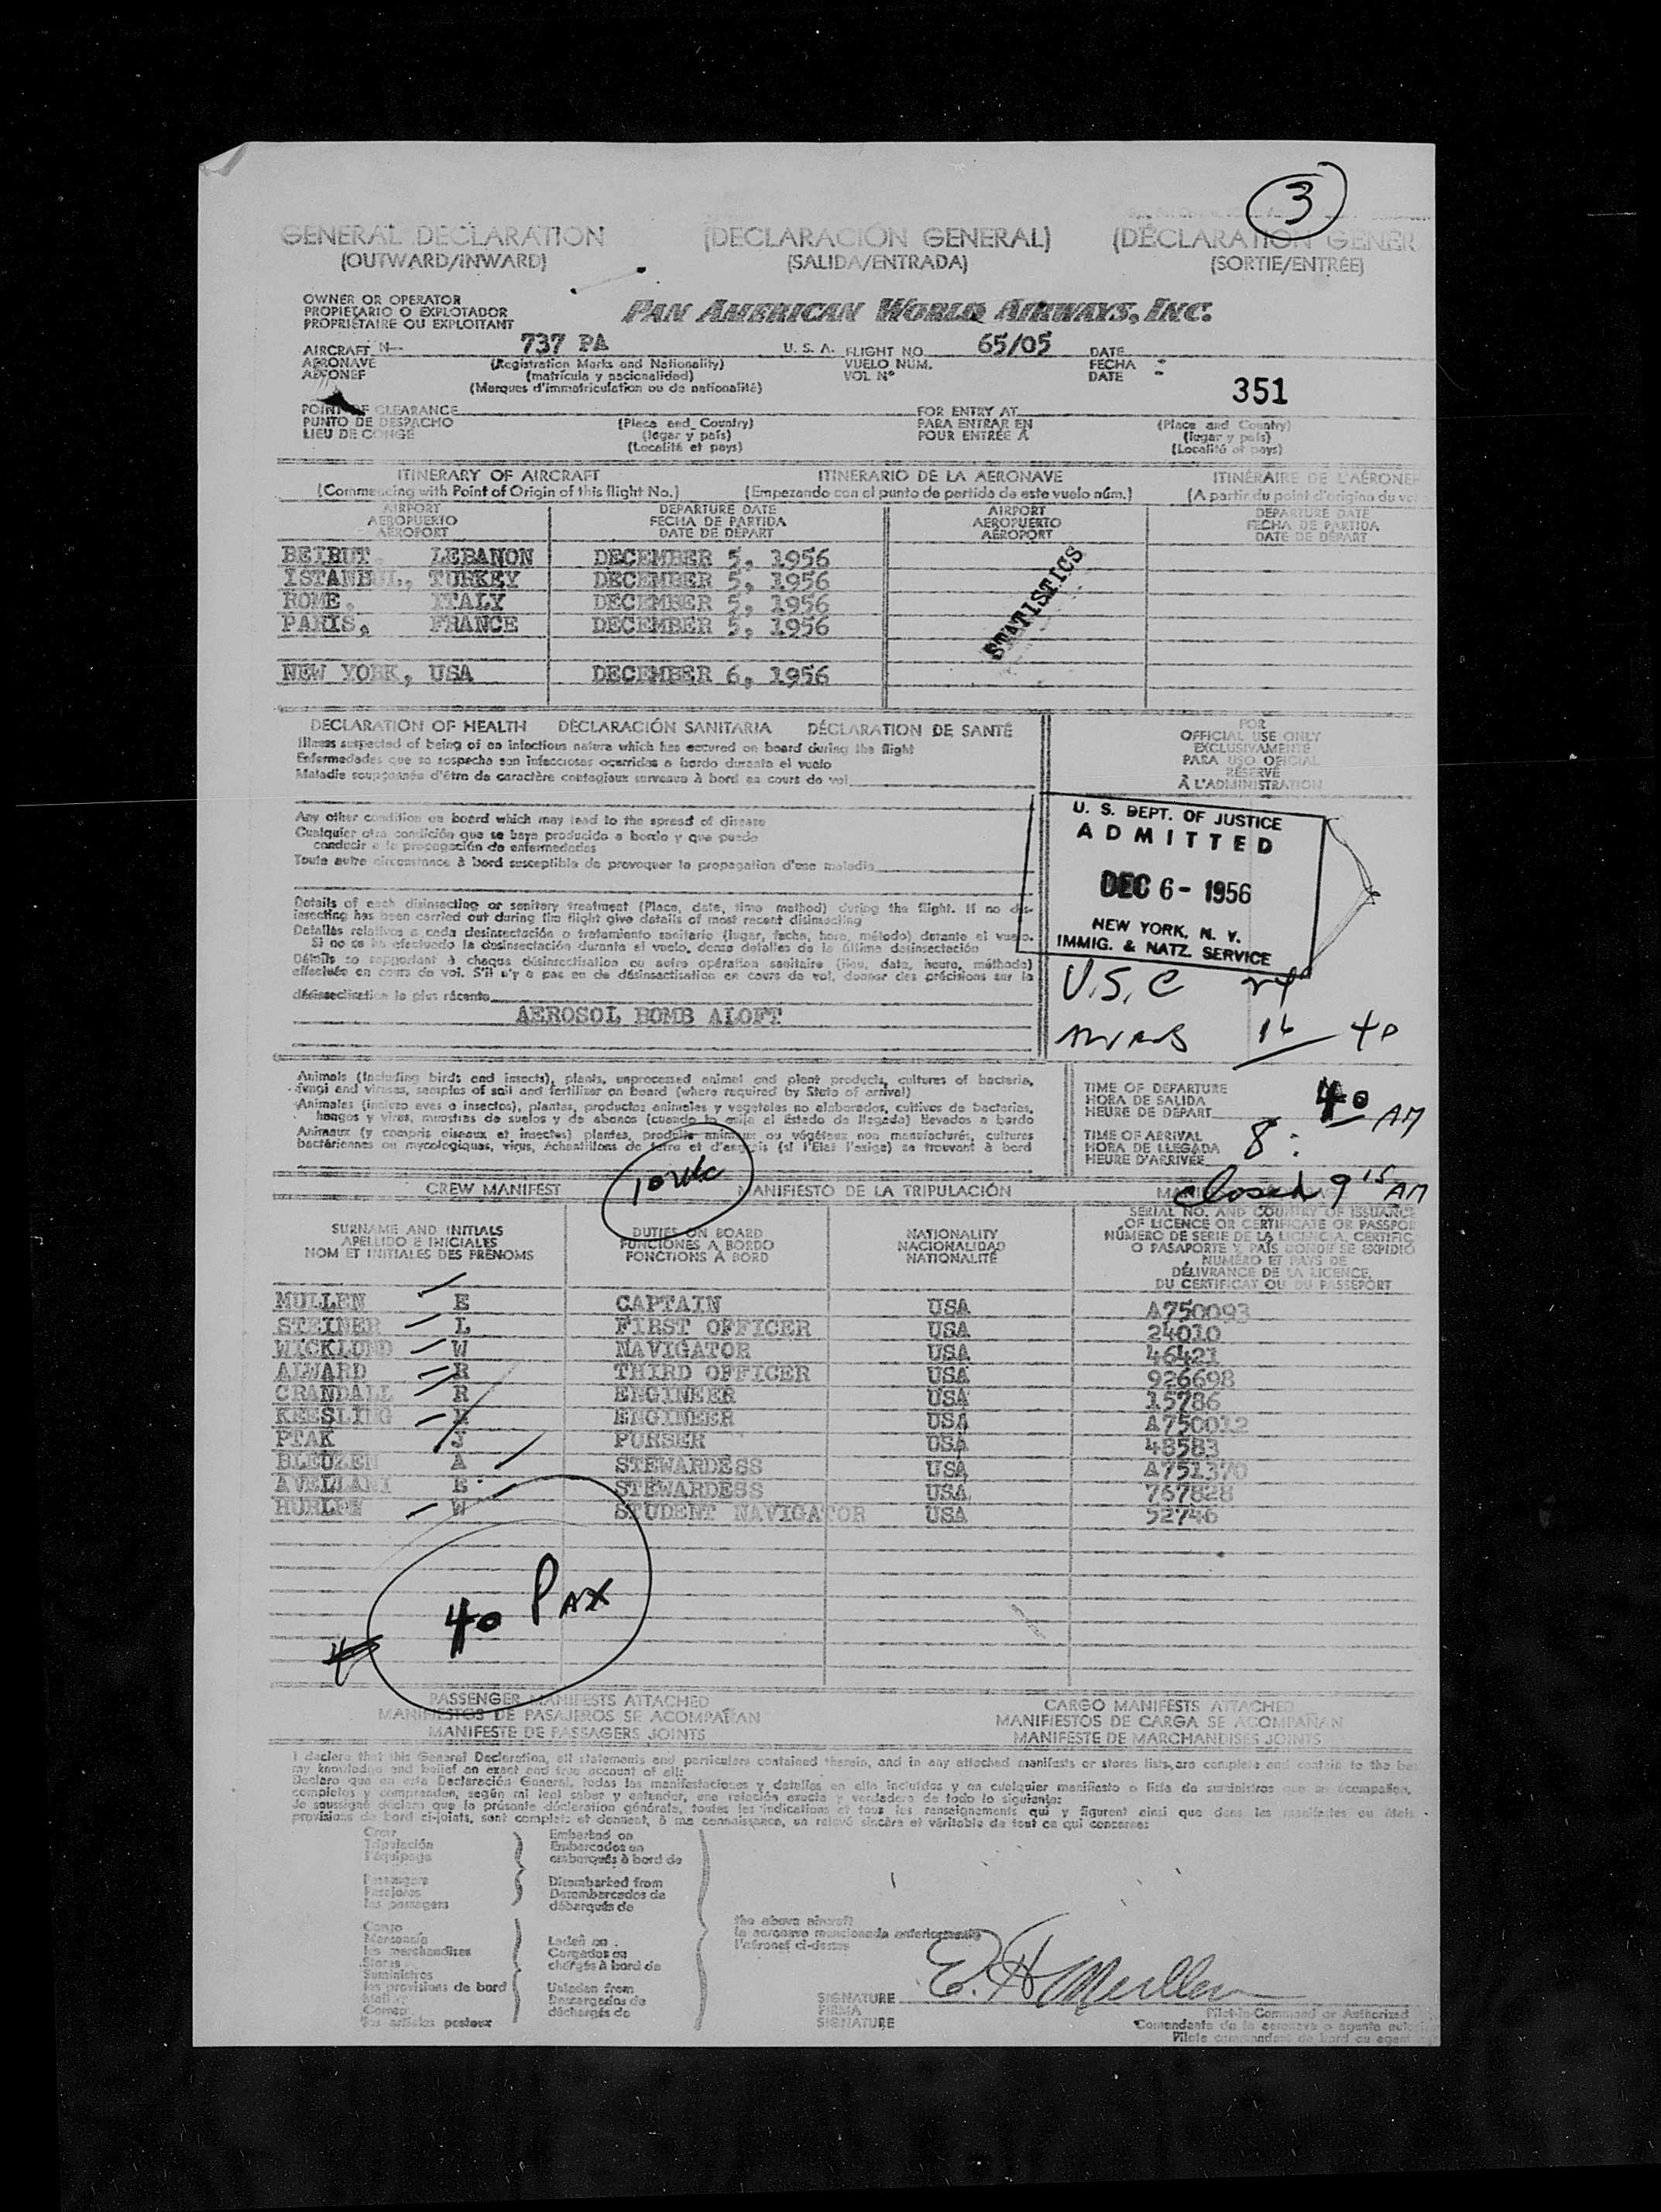 3
GENERAL DECLARATION (DECLARACIÓN GENERAL) (DÉCLARATION GENER
(OUTWARD/INWARD) (SALIDA/ENTRADA) (SORTIE/ENTRÉE)
OWNER OR OPERATOR
PROPIETARIO O EXPLOTADOR PAN AMERICAN WORLD AIRWAYS, INC.
PROPRIÉTAIRE OU EXPLOITANT
AIRCRAFT N— 737 PA U. S. A. FLIGHT NO. 65/05 DATE
AERONAVE (Registration Marks and Nationality) VUELO NÚM. FECHA
AÉRONEF (matrícula y nacionalidad) VOL Nº DATE
(Marques d'immatriculation ou de nationalité) 351
POINT OF CLEARANCE FOR ENTRY AT
PUNTO DE DESPACHO (Place and Country) PARA ENTRAR EN (Place and Country)
LIEU DE CONGÉ (lugar y país) POUR ENTRÉE À (lugar y país)
(Localité et pays) (Localité et pays)
ITINERARY OF AIRCRAFT ITINERARIO DE LA AERONAVE ITINÉRAIRE DE L'AÉRONEF
(Commencing with Point of Origin of this flight No.) (Empezando con el punto de partida de este vuelo núm.) (A partir du point d'origine du vol
AIRPORT DEPARTURE DATE AIRPORT DEPARTURE DATE
AEROPUERTO FECHA DE PARTIDA AEROPUERTO FECHA DE PARTIDA
AÉROPORT DATE DE DÉPART AÉROPORT DATE DE DÉPART
BEIRUT, LEBANON DECEMBER 5, 1956
ISTANBUL, TURKEY DECEMBER 5, 1956
ROME, ITALY DECEMBER 5, 1956
PARIS, FRANCE DECEMBER 5, 1956
STATISTICS
NEW YORK, USA DECEMBER 6, 1956
DECLARATION OF HEALTH DECLARACIÓN SANITARIA DÉCLARATION DE SANTÉ
Illness suspected of being of an infectious nature which has occured on board during the flight
Enfermedades que se sospecha son infecciosas ocurridas a bordo durante el vuelo
Maladie soupçonnée d'être de caractère contagieux survenue à bord en cours de vol
FOR
OFFICIAL USE ONLY
EXCLUSIVAMENTE
PARA USO OFICIAL
RÉSERVÉ
À L'ADMINISTRATION
Any other condition on board which may lead to the spread of disease
Cualquier otra condición que se haya producido a bordo y que puede
conducir a la propagación de enfermedades
Toute autre circonstance à bord susceptible de provoquer la propagation d'une maladie
U. S. DEPT. OF JUSTICE
ADMITTED
DEC 6 - 1956
NEW YORK, N. Y.
IMMIG. & NATZ. SERVICE
Details of each disinsecting or sanitary treatment (Place, date, time method) during the flight. If no dis-
insecting has been carried out during the flight give details of most recent disinsecting
Detalles relativos a cada desinsectación o tratamiento sanitario (lugar, fecha, hora, método) durante el vuelo.
Si no se ha efectuado la desinsectación durante el vuelo, dense detalles de la última desinsectación
Détails se rapportant à chaque désinsectisation ou autre opération sanitaire (lieu, date, heure, méthode)
effectuée en cours de vol. S'il n'y a pas eu de désinsectisation en cours de vol, donner des précisions sur la
désinsectisation la plus récente
AEROSOL BOMB ALOFT
U.S.C 24
16 40
Animals (including birds and insects), plants, unprocessed animal and plant products, cultures of bacteria,
fungi and viruses, samples of soil and fertilizer on board (where required by State of arrival)
Animales (incluso aves o insectos), plantas, productos animales y vegetales no elaborados, cultivos de bacterias,
hongos y virus, muestras de suelos y de abonos (cuando lo exija el Estado de llegada) llevados a bordo
Animaux (y compris oiseaux et insectes) plantes, produits animaux ou végétaux non manufacturés, cultures
bactériennes ou mycologiques, virus, échantillons de terre et d'engrais (si l'Etat l'exige) se trouvant à bord
TIME OF DEPARTURE
HORA DE SALIDA
HEURE DE DÉPART
TIME OF ARRIVAL
HORA DE LLEGADA 8: 40 AM
HEURE D'ARRIVÉE
closed 9 15 AM
CREW MANIFEST MANIFIESTO DE LA TRIPULACIÓN
SURNAME AND INITIALS DUTIES ON BOARD NATIONALITY
APELLIDO E INICIALES FUNCIONES A BORDO NACIONALIDAD
NOM ET INITIALES DES PRÉNOMS FONCTIONS À BORD NATIONALITÉ
SERIAL NO. AND COUNTRY OF ISSUANCE
OF LICENCE OR CERTIFICATE OR PASSPOR
NÚMERO DE SERIE DE LA LICENCIA, CERTIFIC
O PASAPORTE Y PAÍS DONDE SE EXPIDIÓ
NUMÉRO ET PAYS DE
DÉLIVRANCE DE LA LICENCE,
DU CERTIFICAT OU DU PASSEPORT
MULLEN E CAPTAIN USA A750093
STEINER L FIRST OFFICER USA 24010
WICKLUND W NAVIGATOR USA 46421
ALWARD R THIRD OFFICER USA 926698
CRANDALL R ENGINEER USA 15786
KEESLING ENGINEER USA A750012
PTAK J PURSER USA 48583
BLEUZEN A STEWARDESS USA A751370
AVELLANI E STEWARDESS USA 767828
W STUDENT NAVIGATOR USA 52746
40 PAX
PASSENGER MANIFESTS ATTACHED CARGO MANIFESTS ATTACHED
MANIFIESTOS DE PASAJEROS SE ACOMPAÑAN MANIFIESTOS DE CARGA SE ACOMPAÑAN
MANIFESTE DE PASSAGERS JOINTS MANIFESTE DE MARCHANDISES JOINTS
I declare that this General Declaration, all statements and particulars contained therein, and in any attached manifests or stores lists, are complete and contain to the bes
my knowledge and belief an exact and true account of all:
Declaro que en esta Declaración General, todas las manifestaciones y detalles en ella incluídos y en cualquier manifiesto o lista de suministros que se acompañan,
completos y comprenden, según mi leal saber y entender, una relación exacta y verdadera de todo lo siguiente:
Je soussigné déclare que la présente déclaration générale, toutes les indications et tous les renseignements qui y figurent ainsi que dans les manifestes ou états
provisions de bord ci-joints, sont complets et donnent, à ma connaissance, un relevé sincère et véritable de tout ce qui concerne:
Crew Embarked on
Tripulación Embarcados en
l'équipage embarqués à bord de
Passengers Disembarked from
Pasajeros Desembarcados de
les passagers débarqués de
Cargo the above aircraft
Mercancía Laden on la aeronave mencionada anteriormente
les marchandises Cargados en l'aéronef ci-dessus
Stores chargés à bord de
Suministros
les provisions de bord Unladen from
Mail Descargados de
Correo déchargés de
les articles postaux
E. H Mullen
SIGNATURE Pilot-in-Command or Authorized
FIRMA Comandante de la aeronave o agente autori
SIGNATURE Pilote commandant de bord ou agent